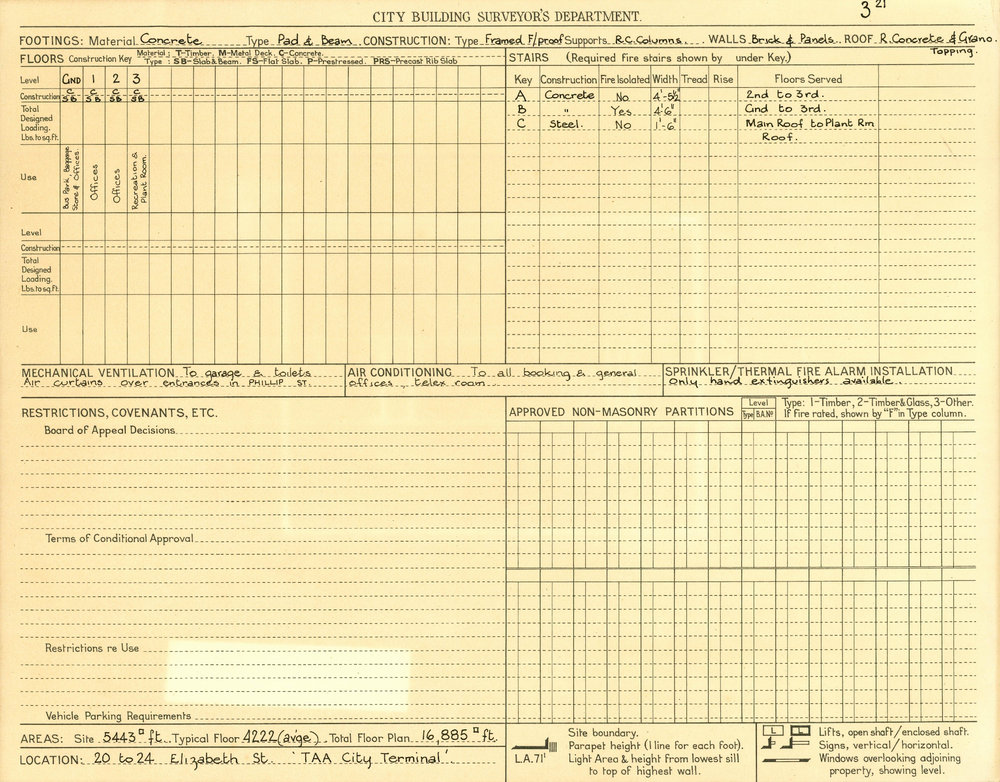 3 21
CITY BUILDING SURVEYOR'S DEPARTMENT.
FOOTINGS: Material Concrete Type Pad & Beam CONSTRUCTION: Type Framed F/proof Supports R.C. Columns. WALLS Brick & Panels. ROOF R. Concrete & Grano. Topping.
FLOORS Construction Key Material; T-Timber, M-Metal Deck, C-Concrete.
Type : SB-Slab & Beam. FS-Flat Slab. P-Prestressed. PRS-Precast Rib Slab
Level GND 1 2 3
Construction C SB C SB C SB C SB
Total Designed Loading. Lbs.to sq.ft.
Use Bus Park, Baggage Store & Offices. Offices Offices Recreation & Plant Room.
Level
Construction
Total Designed Loading. Lbs.to sq.ft.
Use
STAIRS (Required fire stairs shown by under Key.)
Key Construction Fire Isolated Width Tread Rise Floors Served
A Concrete No 4'-5½" 2nd to 3rd.
B " Yes 4'-6" Gnd to 3rd.
C Steel. No 1'-6" Main Roof to Plant Rm
Roof.
MECHANICAL VENTILATION To garage & toilets
Air curtains over entrances in PHILLIP ST.
AIR CONDITIONING To all booking & general
offices, telex room
SPRINKLER/THERMAL FIRE ALARM INSTALLATION
Only hand extinguishers available.
RESTRICTIONS, COVENANTS, ETC.
Board of Appeal Decisions.
Terms of Conditional Approval
Restrictions re Use
Vehicle Parking Requirements
APPROVED NON-MASONRY PARTITIONS Level Type B.A.Nº Type: 1-Timber, 2-Timber & Glass, 3-Other.
If fire rated, shown by "F" in Type column.
AREAS: Site 5443 □ ft. Typical Floor 4222 (av'ge) Total Floor Plan. 16,885 □ ft.
LOCATION: 20 to 24 Elizabeth St. 'TAA City Terminal'
Site boundary.
Parapet height (1 line for each foot).
L.A.71' Light Area & height from lowest sill
to top of highest wall.
L L Lifts, open shaft/enclosed shaft.
Signs, vertical/horizontal.
Windows overlooking adjoining
property, showing level.